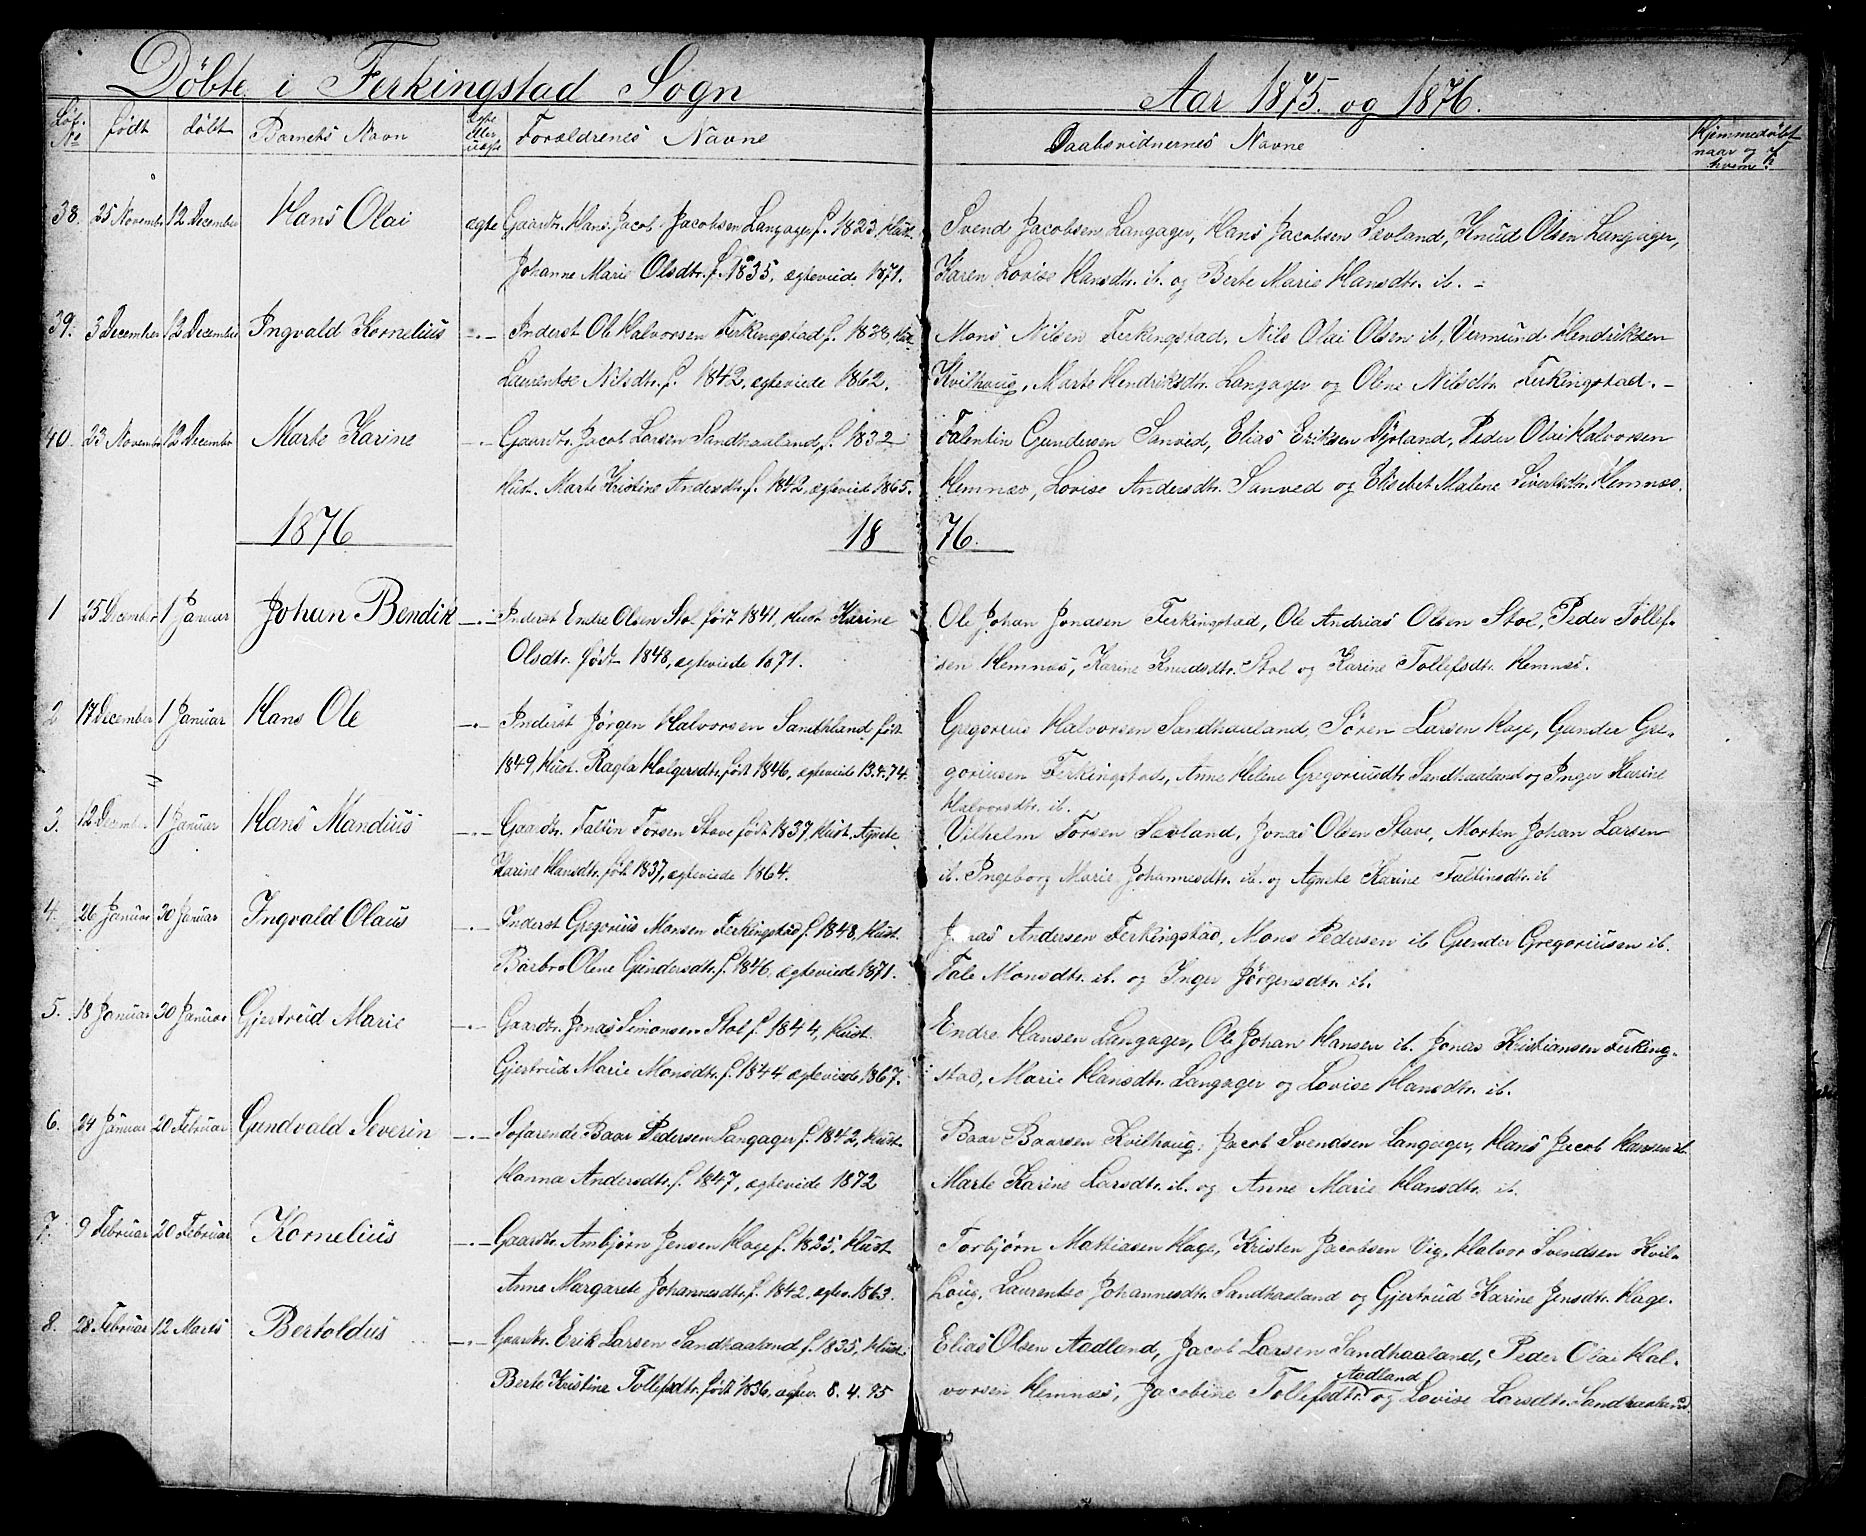 Döbte i Ferkingstad Sogn
Aar 1875 og 1876.
Löb. No födt döbt Barnets Navn Ægte eller uægte Forældrenes Navne
Daabsvidnernes Navne
Hjemmedöbt naar og af hvem?
38. 25 November 12 December Hans Olai ægte Gaardbr. Hans Jacob Jacobsen Langager f. 1823, Hust.
Johanne Marie Olsdtr. f. 1835, ægteviede 1871.
Svend Jacobsen Langager, Hans Jacobsen Sævland, Knud Olsen Langager,
Karen Lovise Hansdtr. ib. og Berte Marie Hansdtr. ib. -
39. 3 December 12 December Ingvald Kornelius -.- Inderst Ole Halvorsen Ferkingstad f. 1828, Hust.
Laurentse Nilsdtr. f. 1842, ægteviede 1862.
Mons Nilsen Ferkingstad, Nils Olai Olsen ib, Vermund Hendriksen
Kvilhaug, Marte Hendriksdtr. Langager og Olene Nilsdtr. Ferkingstad. -
40. 23 November 12 December Marte Karine -.- Gaardbr. Jacob Larsen Sandhaaland, f. 1832
Hust. Marte Kristine Andersdtr. f. 1842, ægteviede 1865.
Falentin Gundersen Sanved, Elias Eriksen Dyrland, Peder Olai Halvorsen
Hemnæs, Lovise Andersdtr. Sanved og Elisebet Malene Sivertsdtr. Hemnæs.
1876 18 76.
1 25 December 1 Januar Johan Bendik -.- Inderst Endre Olsen Stol födt 1841, Hust. Karine
Olsdtr. födt 1848, ægteviede 1871.
Ole Johan Jonasen Ferkingstad, Ole Andrias Olsen Stol, Peder Tollef-
sen Hemnæs, Karine Knudsdtr. Stol og Karine Tollefsdtr. Hemnæs.
2 17 December 1 Januar Hans Ole -.- Inderst Jörgen Halvorsen Sandhland, födt
1849, Hust. Ragla Holgersdtr. födt 1846, ægteviede 13.4.74.
Gregorius Halvorsen Sandhaaland, Sören Larsen Hage, Gunder Gre-
goriusen Ferkingstad, Anne Helene Gregoriusdtr Sandhaaland og Inger Karine
Halvorsdtr. ib.
3. 12 December 1 Januar Hans Mandius -.- Gaardbr. Faltin Torsen Stave födt 1837, Hust. Agnete
Karine Hansdtr. föt. 1837, ægteviede 1864.
Vilhelm Torsen Sævland, Jonas Olsen Stave, Morten Johan Larsen
ib. Ingeborg Marie Johannesdtr. ib. og Agnete Karine Faltinsdtr. ib
4. 26 Januar 30 Januar Ingvald Olaus -.- Inderst Gregorius Monsen Ferkingstad f. 1848, Hust.
Barbro Olene Gundersdtr. f. 1846, ægteviede 1871.
Jonas Andersen Ferkingstad, Mons Pedersen ib Gunder Gregoriusen ib.
Tale Monsdtr. ib. og Inger Jörgensdtr. ib.
5. 18 Januar 30 Januar Gjertrud Marie -.- Gaardbr. Jonas Simonsen Stol f. 1844, Hust.
Gjertrud Marie Monsdtr. f. 1844 ægteviede 1867.
Endre Hansen Langager, Ole Johan Hansen ib. Jonas Kristiansen Ferking-
stad, Marie Hansdtr. Langager og Lovise Hansdtr. ib.
6. 24 Januar 20 Februar Gundvald Severin -.- Sofarende Baar Pedersen Langager f. 1842, Hust.
Hanna Andersdtr. f. 1847, ægteviede 1872
Baar Baarsen Kvilhaug, Jacob Svendsen Langager, Hans Jacob Hansen ib.
Marte Karine Larsdtr. ib. og Anne Marie Hansdtr. ib.
7. 9 Februar 20 Februar Kornelius -.- Gaardbr. Ambjörn Jensen Hage f. 1825, Hust
Anne Margarete Johannesdtr. f. 1842, ægtev. 1863.
Torbjörn Mattiasen Hage, Kristen Jacobsen Vig, Halvor Svendsen Kvil-
haug, Laurentse Johannesdtr. Sandhaaland og Gjertrud Karine Jensdtr. Hage.
8. 28 Februar 12 Marts Bertoldus -.- Gaardbr. Erik Larsen Sandhaaland f. 1835, Hust.
Berte Kristine Tollefsdtr. födt 1836, ægtev. 8. 4. 75
Elias Olsen Aadland, Jacob Larsen Sandhaaland, Peder Olai Hal-
vorsen Hemnæs, Jacobine Tollefsdtr. Aadland og Lovise Larsdtr. Sandhaaland.